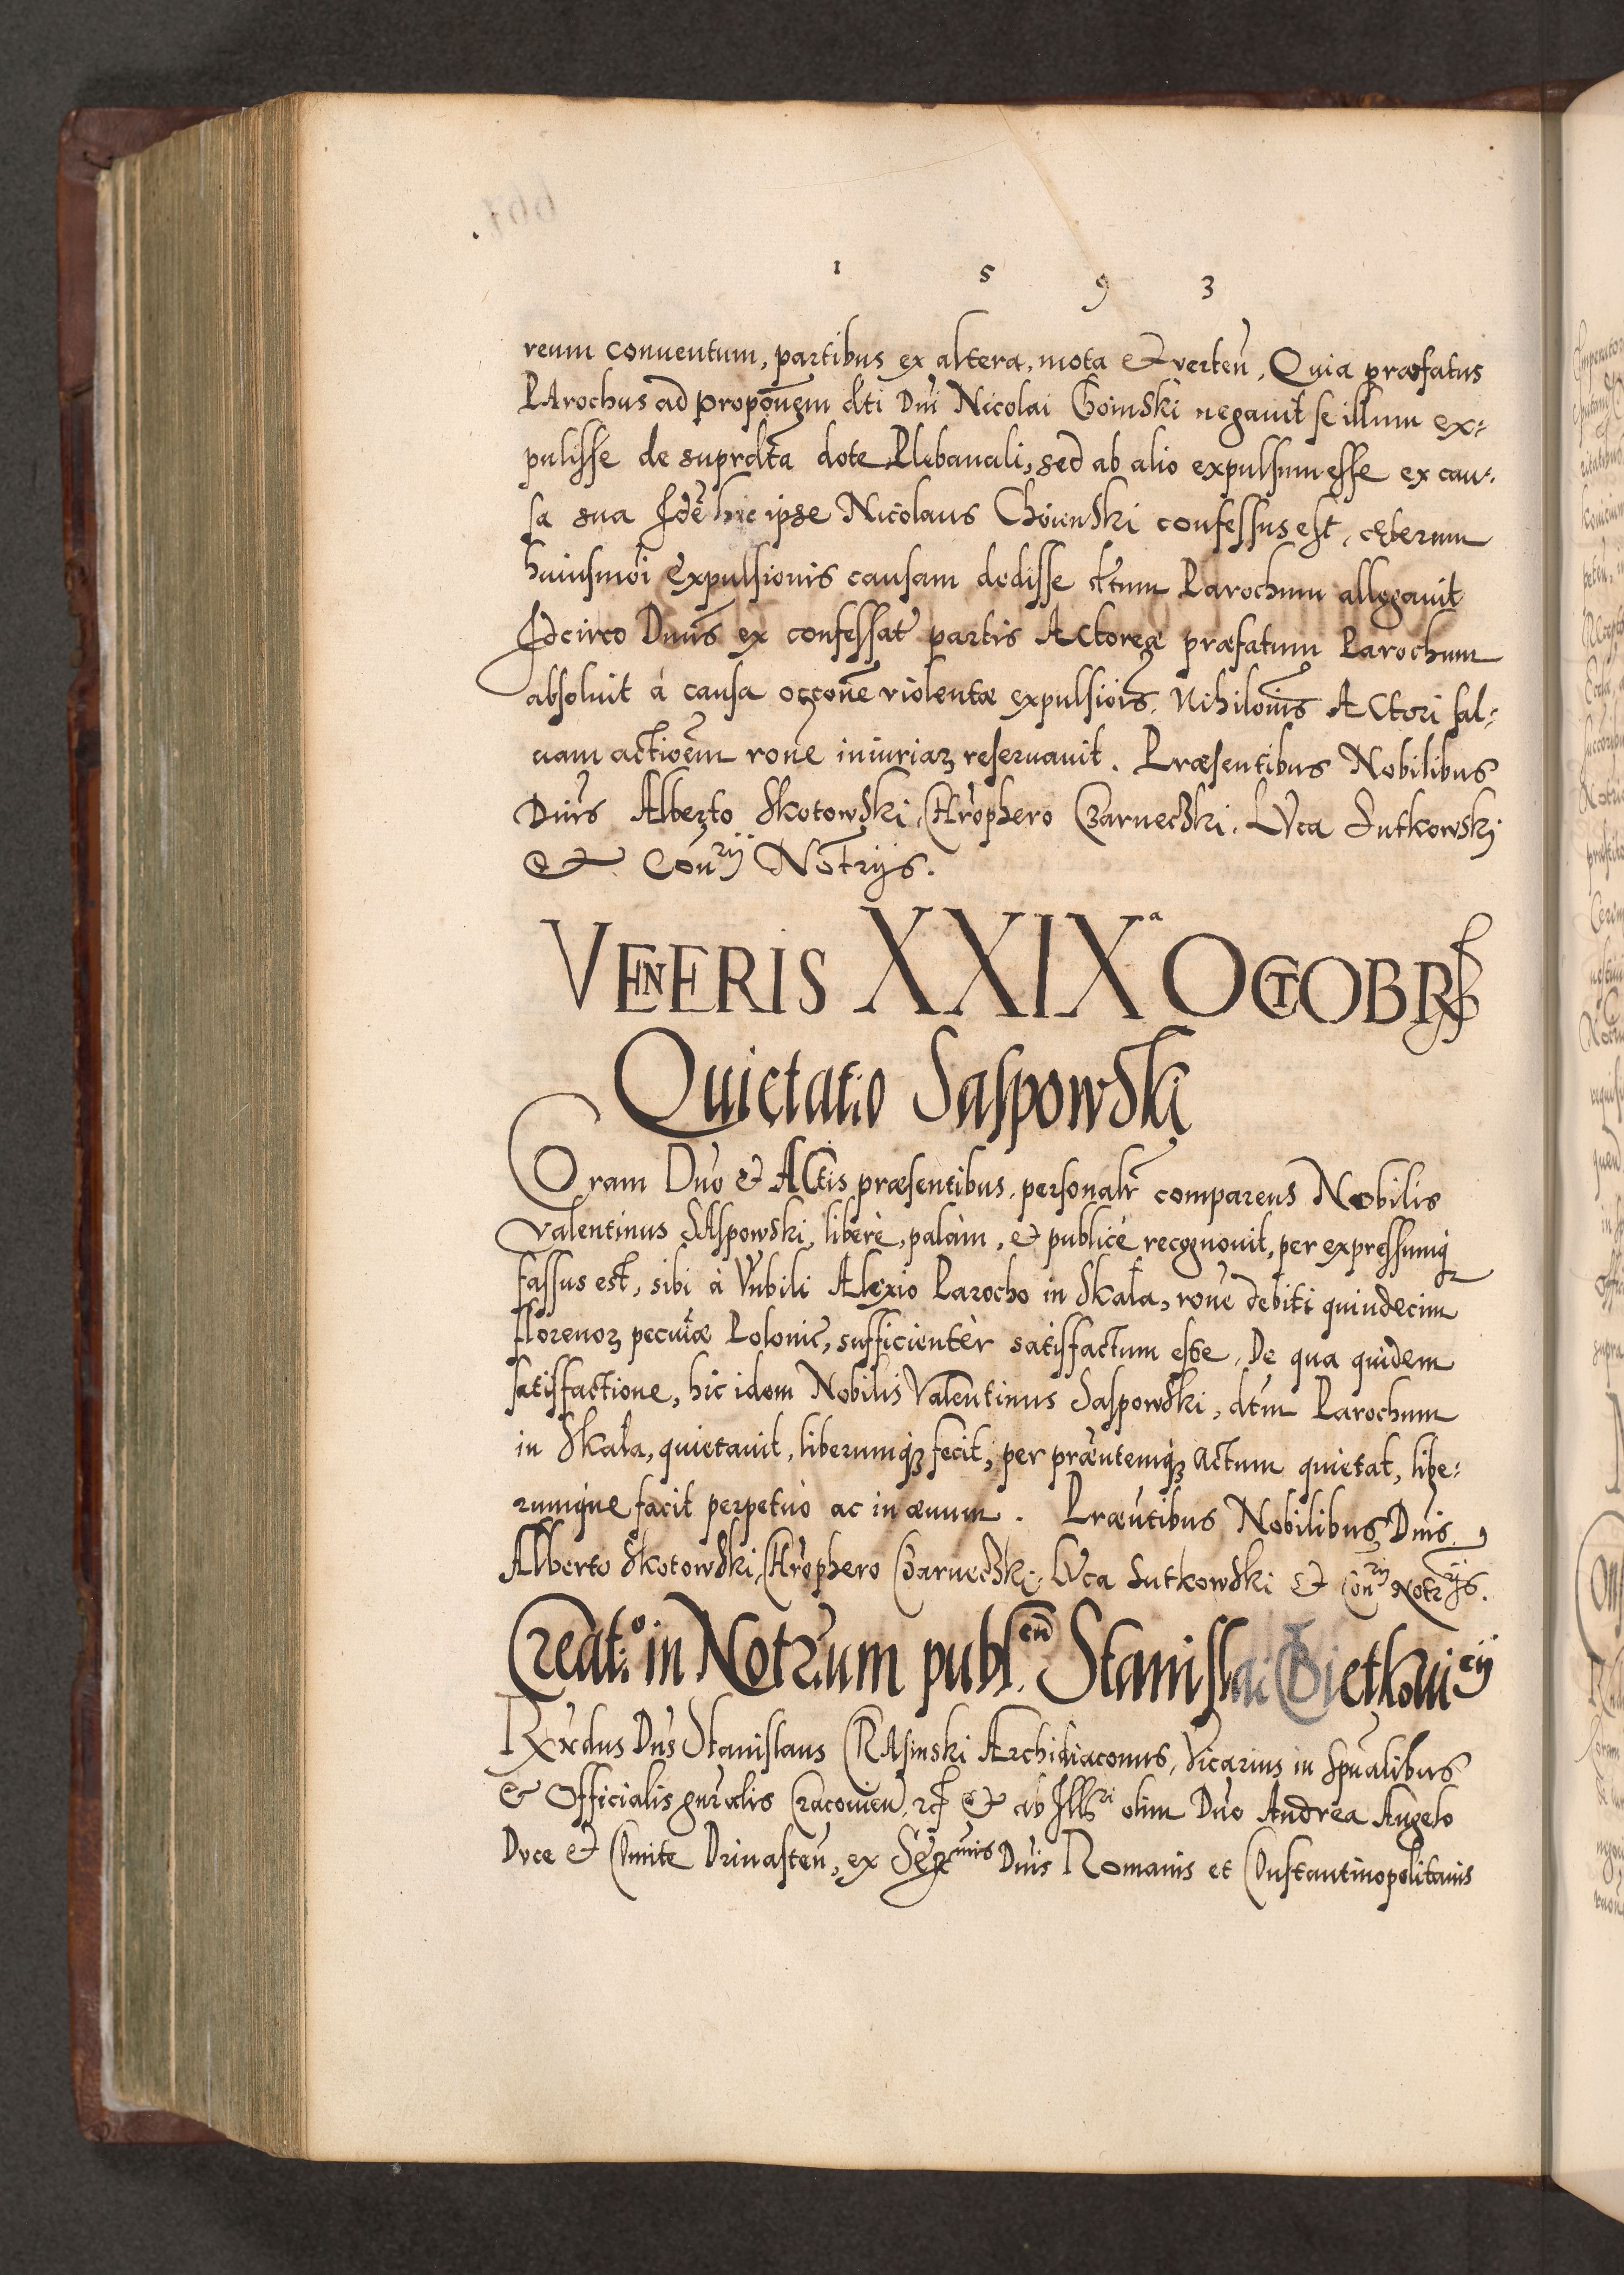 1 5 9 3
reum conuentum, partibus ex altera, mota & verteñ, Quia præfatus
PArochus ad proponẽm dti Dni Nicolai Choinski negauit se illum ex=
pulisse de suprdta dote Plebanali, sed ab alio expulsum esse ex cau=
sa sua Idẽ hic ipse Nicolaus Choienski confessus est, cęterum
huiusmõi expulsionis causam dedisse dtum Parochum allegauit
Idcirco Dnus ex confessat partis ACtoreæ præfatum Parochum
absoluit à causa occõne violentæ expulsiõis. Nihilomĩs ACtori sal=
uam actioẽm rõne iniuriaꝝ reseruauit. Præsentibus Nobilibus
Dnis Alberto Skotowski, Chrõphero Czarneczki, LVca Sutkowski
& Con^rij Notrijs.
VENERIS XXIX^a OCTOBRIS
Quietatio Saspowski
Coram Dño & ACtis præsentibus, personalr comparens Nobilis
Valentinus SAspowski, liberè, palàm, & publicè recognouit, per expressumq
fassus est, sibi à Vnbili Alexio Parocho in Skała, rõne debiti quindecim
florenoꝝ pecuiæ Polonic, sufficientèr satisfactum esse, De qua quidem
satisfactione, hic idem Nobilis Valentinus Saspowski, dtm Parochum
in Skała, quietauit, liberumqꝫ fecit, per præntemqꝫ actum quietat, libe=
rumque facit perpetuò ac in æuum. Præntibus Nobilibus Dnis
Alberto Skotowski, Chrõphero Czarneczki, LVca Sutkowski & Con^rij Notrijs.
Creat^o in Notrum publ^cũ Stanislai Bietkoui^cij
Rxndus Dns Stanislaus CRAsinski Archidiaconus, Vicarius in Spualibus
& Officialis gnralis Cracouien, & ab Ill^ri olim Dño Andrea Angelo
Dvce & Comite Driuasteñ, ex Ser^mis Dnis Romanis et Constantinopolitanis